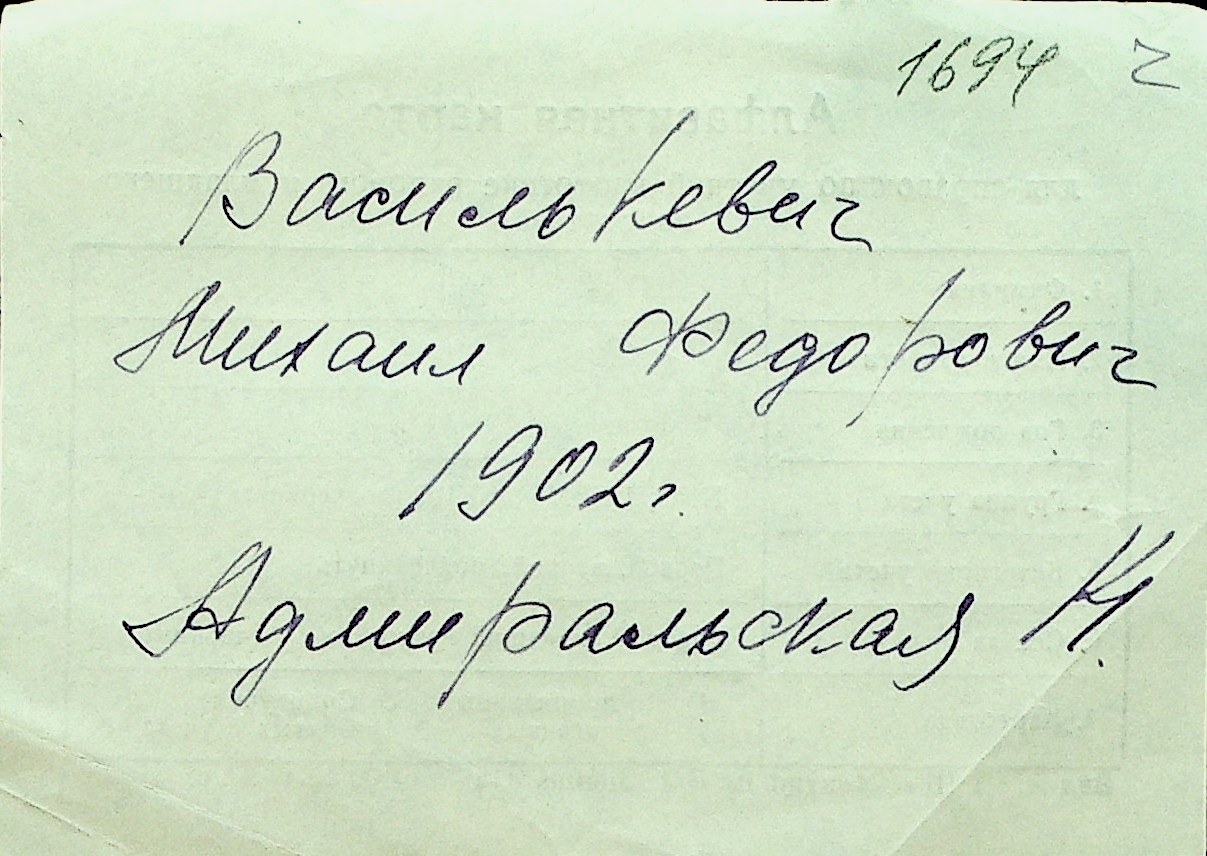 1694 г
Василькевич
Михаил Федорович
1902 г.
Адмиральская